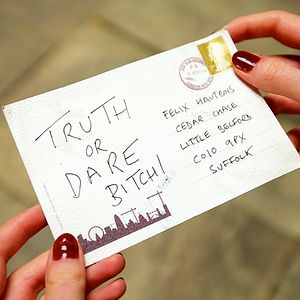 TRUTH
OR
DARE
BITCH!
FELIX HAUTBOIS
CEDAR CHASE
LITTLE BELFORD
CO10 9PX
SUFFOLK